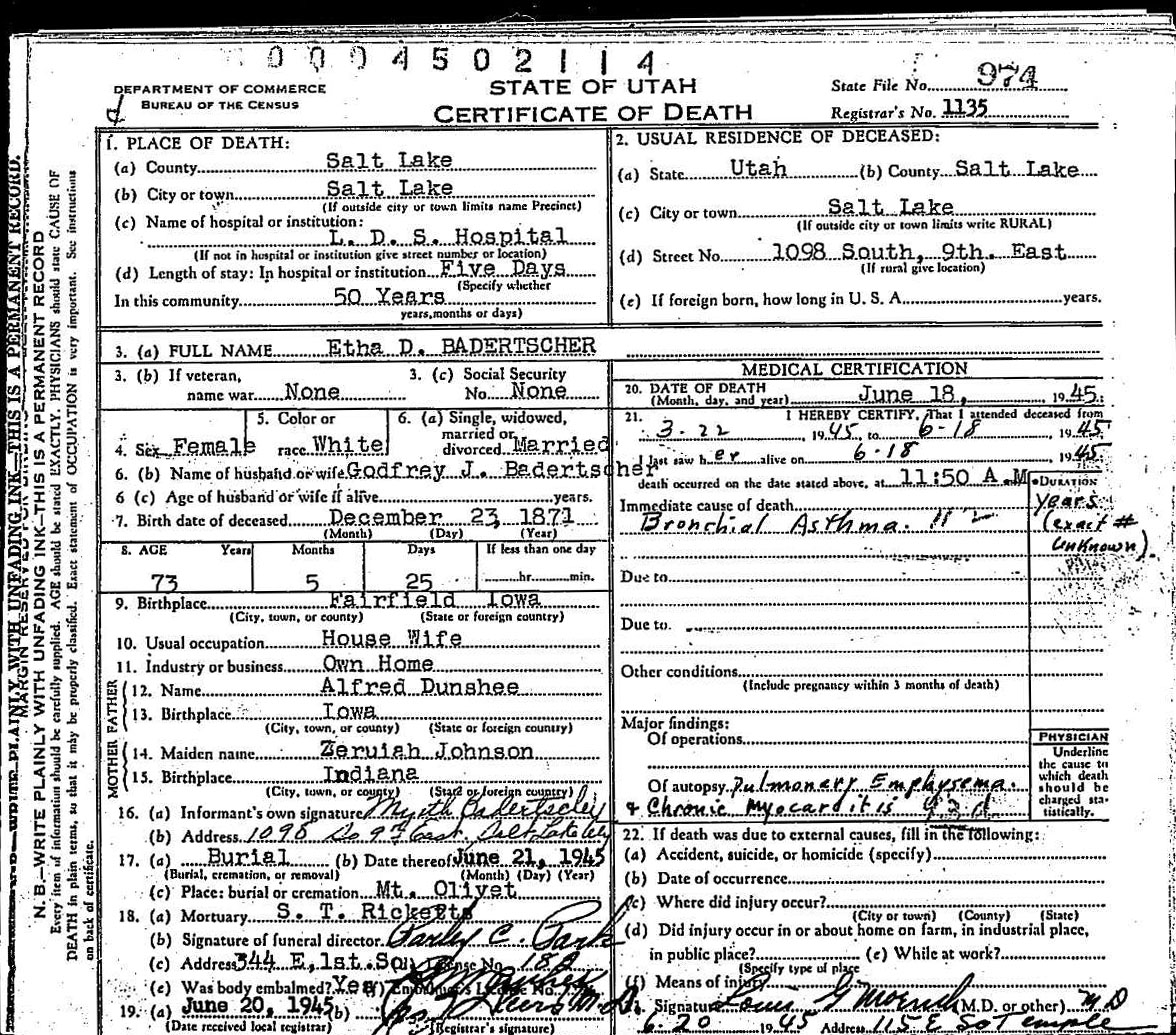 0 0 0 4 5 0 2 1 1 4
DEPARTMENT OF COMMERCE
BUREAU OF THE CENSUS
STATE OF UTAH
CERTIFICATE OF DEATH
State File No. 974
Registrar's No. 1135
N. B.—WRITE PLAINLY WITH UNFADING INK—THIS IS A PERMANENT RECORD
Every item of information should be carefully supplied. AGE should be stated EXACTLY. PHYSICIANS should state CAUSE OF
DEATH in plain terms, so that it may be properly classified. Exact statement of OCCUPATION is very important. See instructions
on back of certificate.
1. PLACE OF DEATH:
(a) County Salt Lake
(b) City or town Salt Lake
(If outside city or town limits name Precinct)
(c) Name of hospital or institution:
L. D. S. Hospital
(If not in hospital or institution give street number or location)
(d) Length of stay: In hospital or institution Five Days
(Specify whether
In this community 50 Years
years, months or days)
2. USUAL RESIDENCE OF DECEASED:
(a) State Utah (b) County Salt Lake
(c) City or town Salt Lake
(If outside city or town limits write RURAL)
(d) Street No 1098 South, 9th. East
(If rural give location)
(e) If foreign born, how long in U. S. A. years.
3. (a) FULL NAME Etha D. BADERTSCHER
3. (b) If veteran, 3. (c) Social Security
name war None No. None
5. Color or 6. (a) Single, widowed,
married or
4. Sex Female race White divorced Married
6. (b) Name of husband or wife Godfrey J. Badertscher
6 (c) Age of husband or wife if alive years.
7. Birth date of deceased December 23, 1871
(Month) (Day) (Year)
8. AGE Years Months Days If less than one day
73 5 25 hr. min.
9. Birthplace Fairfield Iowa
(City, town, or county) (State or foreign country)
10. Usual occupation House Wife
11. Industry or business Own Home
FATHER
12. Name Alfred Dunshee
13. Birthplace Iowa
(City, town, or county) (State or foreign country)
MOTHER
14. Maiden name Zeruiah Johnson
15. Birthplace Indiana
(City, town, or county) (State or foreign country)
16. (a) Informant's own signature Myrth Badertscher
(b) Address 1098 So 9th East. Salt Lake City
17. (a) Burial (b) Date thereof June 21, 1945
(Burial, cremation, or removal) (Month) (Day) (Year)
(c) Place: burial or cremation Mt. Olivet
18. (a) Mortuary S. T. Ricketts
(b) Signature of funeral director
(c) Address 344 E, 1st. So. License No.
(e) Was body embalmed? Yes (f) Embalmer's License No.
19. (a) June 20, 1945 (b)
(Date received local registrar) (Registrar's signature)
MEDICAL CERTIFICATION
20. DATE OF DEATH
(Month, day, and year) June 18, 1945
21. I HEREBY CERTIFY, That I attended deceased from
3-22, 1945 to 6-18, 1945
I last saw her alive on 6-18 1945
death occurred on the date stated above, at 11:50 A.M
DURATION
Immediate cause of death Years
Bronchial Asthma. 112 (exact #
unknown)
Due to
Due to
Other conditions
(Include pregnancy within 3 months of death)
Major findings:
Of operations
Of autopsy Pulmonary Emphysema.
& Chronic Myocarditis 93d
PHYSICIAN
Underline
the cause to
which death
should be
charged sta-
tistically.
22. If death was due to external causes, fill in the following:
(a) Accident, suicide, or homicide (specify)
(b) Date of occurrence
(c) Where did injury occur?
(City or town) (County) (State)
(d) Did injury occur in or about home on farm, in industrial place,
in public place? (e) While at work?
(Specify type of place
(f) Means of injury
Signature Louis G Moench (M.D. or other) MD
6-20 1945 Address 115 E So Temple